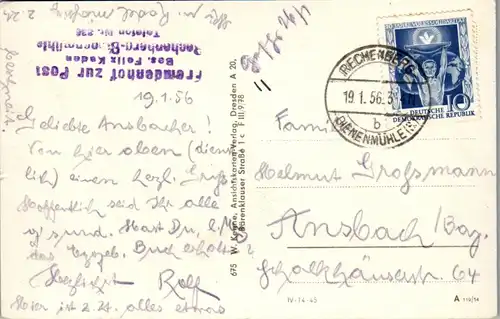 Fremdenhof zur Post
Bes. Felix Kaden
Rechenberg-Bienenmühle
Telefon Nr. 236
19.1.56
Geliebte Ansbacher!
Von hier oben (dienst-
lich) einen herzl. Gruß.
Hoffentlich seid Ihr alle
gesund. Hast Du, l. H.
das Buch erhalten?
Herzlichst Rolf
Hier ist z. Zt. alles etwas
675 W. Kenne, Ansichtskarten-Verlag, Dresden A 20,
Bärenklauser Straße 1 c F III 9/78
IV-14-45
RECHENBERG-
19.1.56.
b
BIENENMÜHLE
DEUTSCHE
DEMOKRATISCHE REPUBLIK
10
Familie
Helmut Großmann
Ansbach/Bay.
Schalkhäuserstr. 64
A